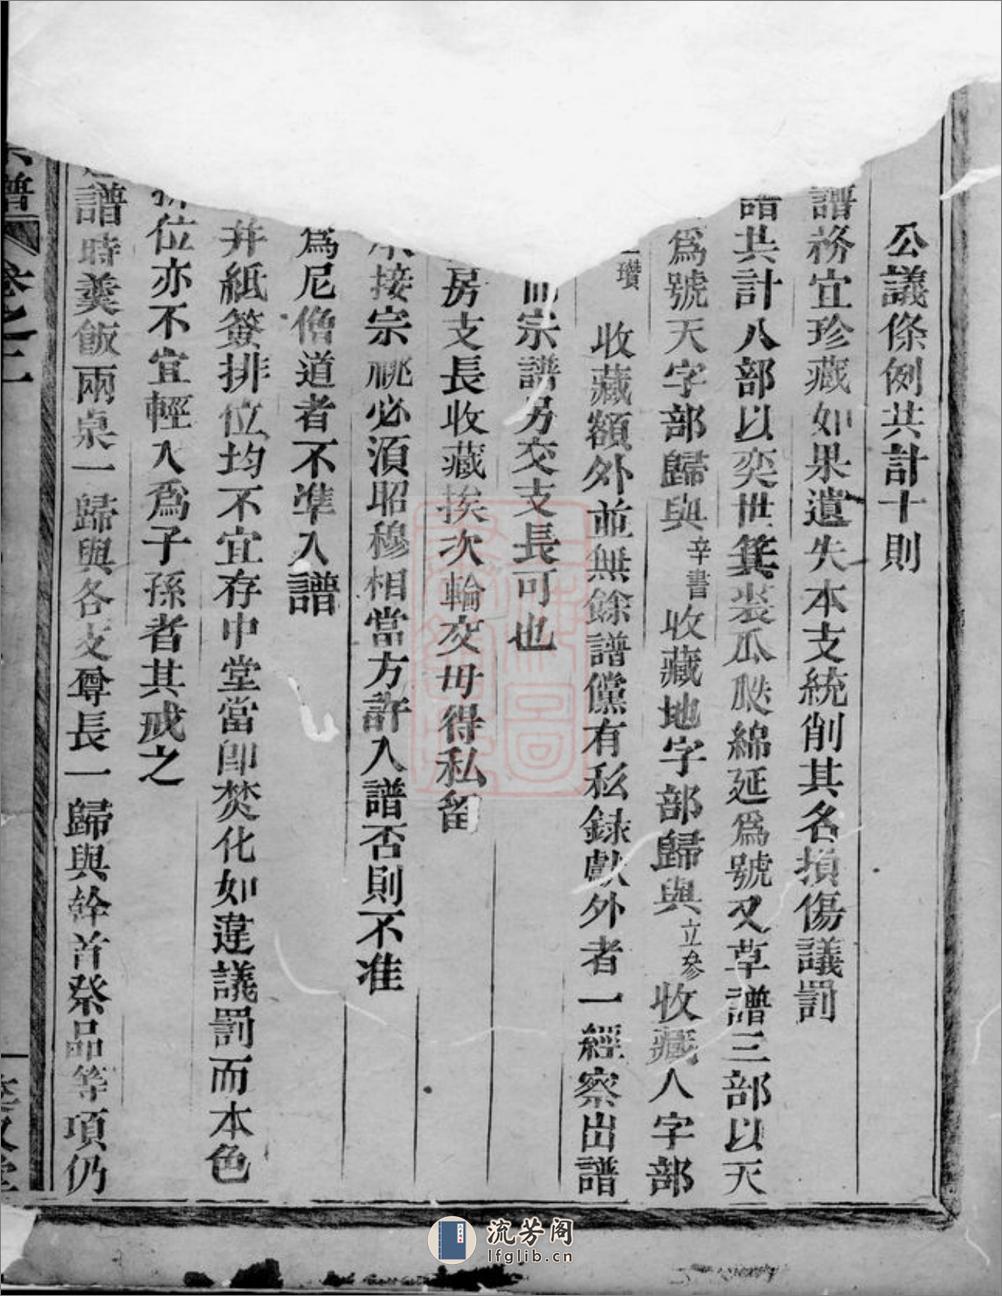 公議條例共計十則
譜務宜珍藏如果遺失本支統削其名損傷議罰
譜共計八部以奕世箕裘瓜瓞綿延爲號又草譜三部以天
爲號天字部歸與辛書收藏地字部歸與立參收藏人字部
瓚收藏額外並無餘譜儻有私録獻外者一經察出譜
而宗譜另交支長可也
房支長收藏挨次輪交毋得私留
承接宗祧必須昭穆相當方許入譜否則不准
爲尼僧道者不準入譜
并紙簽排位均不宜存中堂當卽焚化如違議罰而本色
排位亦不宜輕入爲子孫者其戒之
譜時羹飯兩桌一歸與各支尊長一歸與幹首祭品等項仍
宗譜 卷之二
流芳阁
lfglib.cn